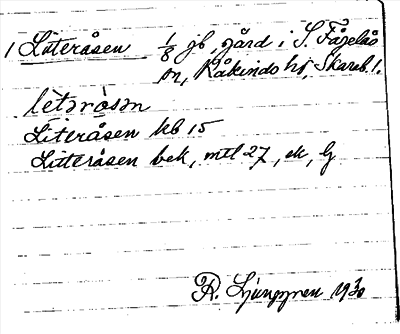 1 Literåsen 1/8 gb, gård i S. Fågelås
sn, Kåkinds hd, Skarab. l.
lètəròsən
Literåsen kb 15
Litteråsen bek, mtl 27, ek, G
R. Ljunggren 1930